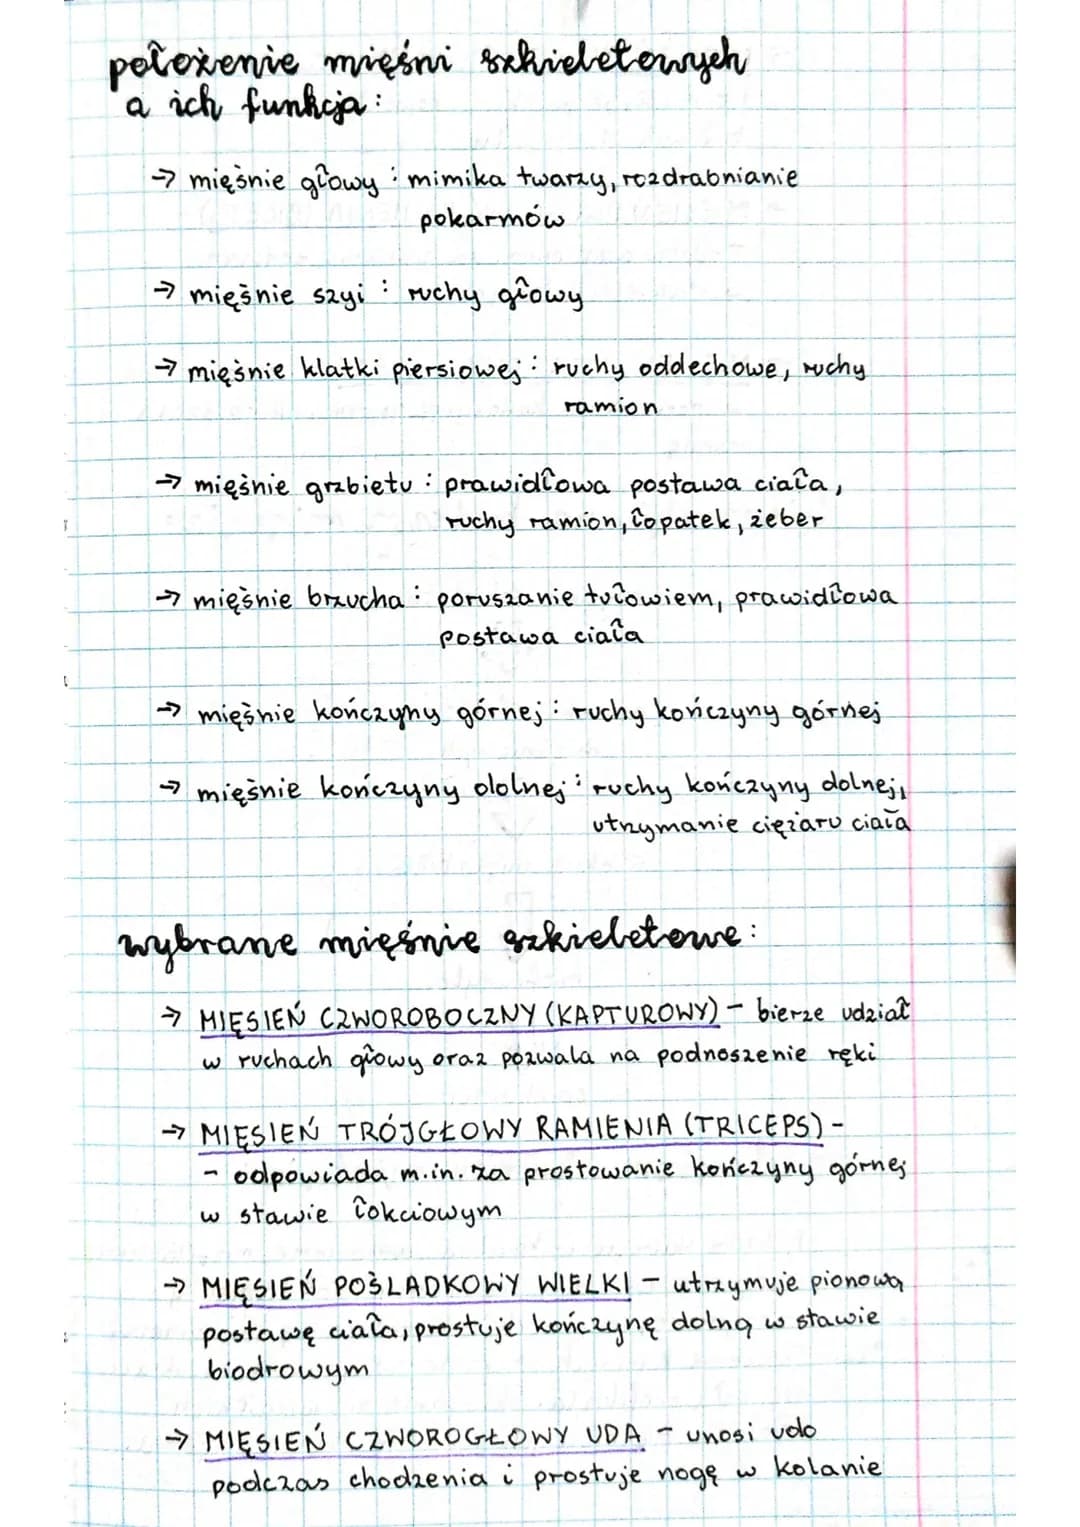 położenie mięśni szkieletowych
a ich funkcja:
→ mięśnie głowy: mimika twarzy, rozdrabnianie
pokarmów
→ mięśnie szyi: ruchy głowy
→ mięśnie klatki piersiowej: ruchy oddechowe, ruchy
ramion
→ mięśnie grzbietu: prawidłowa postawa ciała,
ruchy ramion, łopatek, żeber
→ mięśnie brzucha: poruszanie tułowiem, prawidłowa
postawa ciała
→ mięśnie kończyny górnej: ruchy kończyny górnej
→ mięśnie kończyny dolnej: ruchy kończyny dolnej,
utrzymanie ciężaru ciała
wybrane mięśnie szkieletowe:
→ MIĘSIEŃ CZWOROBOCZNY (KAPTUROWY) - bierze udział
w ruchach głowy oraz pozwala na podnoszenie ręki
→ MIĘSIEŃ TRÓJGŁOWY RAMIENIA (TRICEPS) -
- odpowiada m.in. za prostowanie kończyny górnej
w stawie łokciowym
→ MIĘSIEŃ POŚLADKOWY WIELKI - utrzymuje pionową
postawę ciała, prostuje kończynę dolną w stawie
biodrowym
→ MIĘSIEŃ CZWOROGŁOWY UDA - unosi udo
podczas chodzenia i prostuje nogę w kolanie